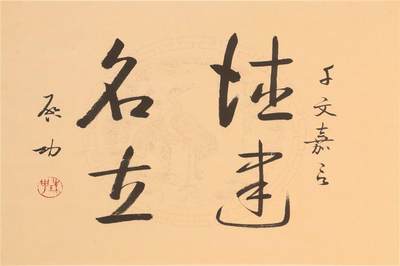 千文嘉言
德建
名立
启功